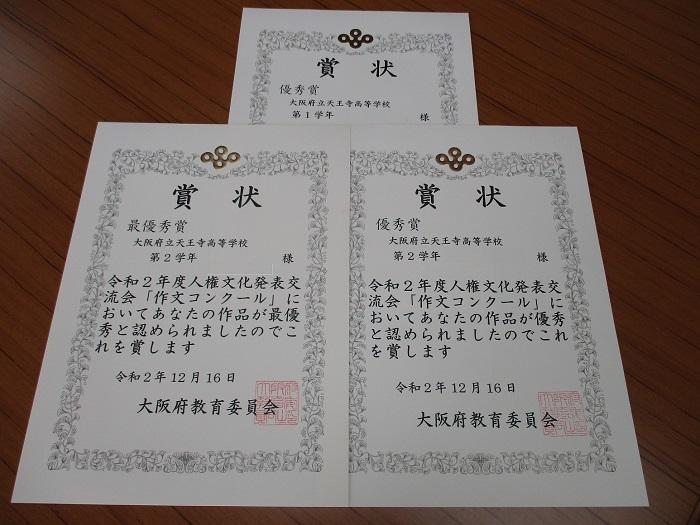 賞状
優秀賞
大阪府立天王寺高等学校
第1学年 様
賞状
最優秀賞
大阪府立天王寺高等学校
第2学年 様
令和2年度人権文化発表交
流会「作文コンクール」に
おいてあなたの作品が最優
秀と認められましたのでこ
れを賞します
令和2年12月16日
大阪府教育委員会
賞状
優秀賞
大阪府立天王寺高等学校
第2学年 様
令和2年度人権文化発表交
流会「作文コンクール」に
おいてあなたの作品が優秀
と認められましたのでこれ
を賞します
令和2年12月16日
大阪府教育委員会